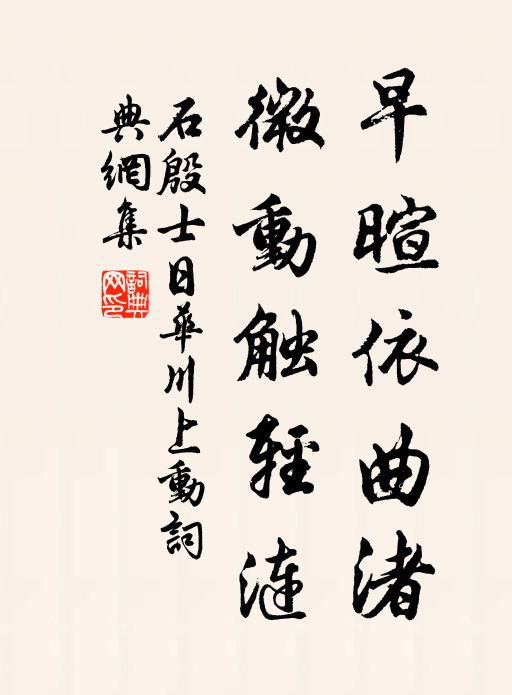 早暄依曲渚
微動触輕漣
石殷士日華川上動詞
典網集
詞典
网印